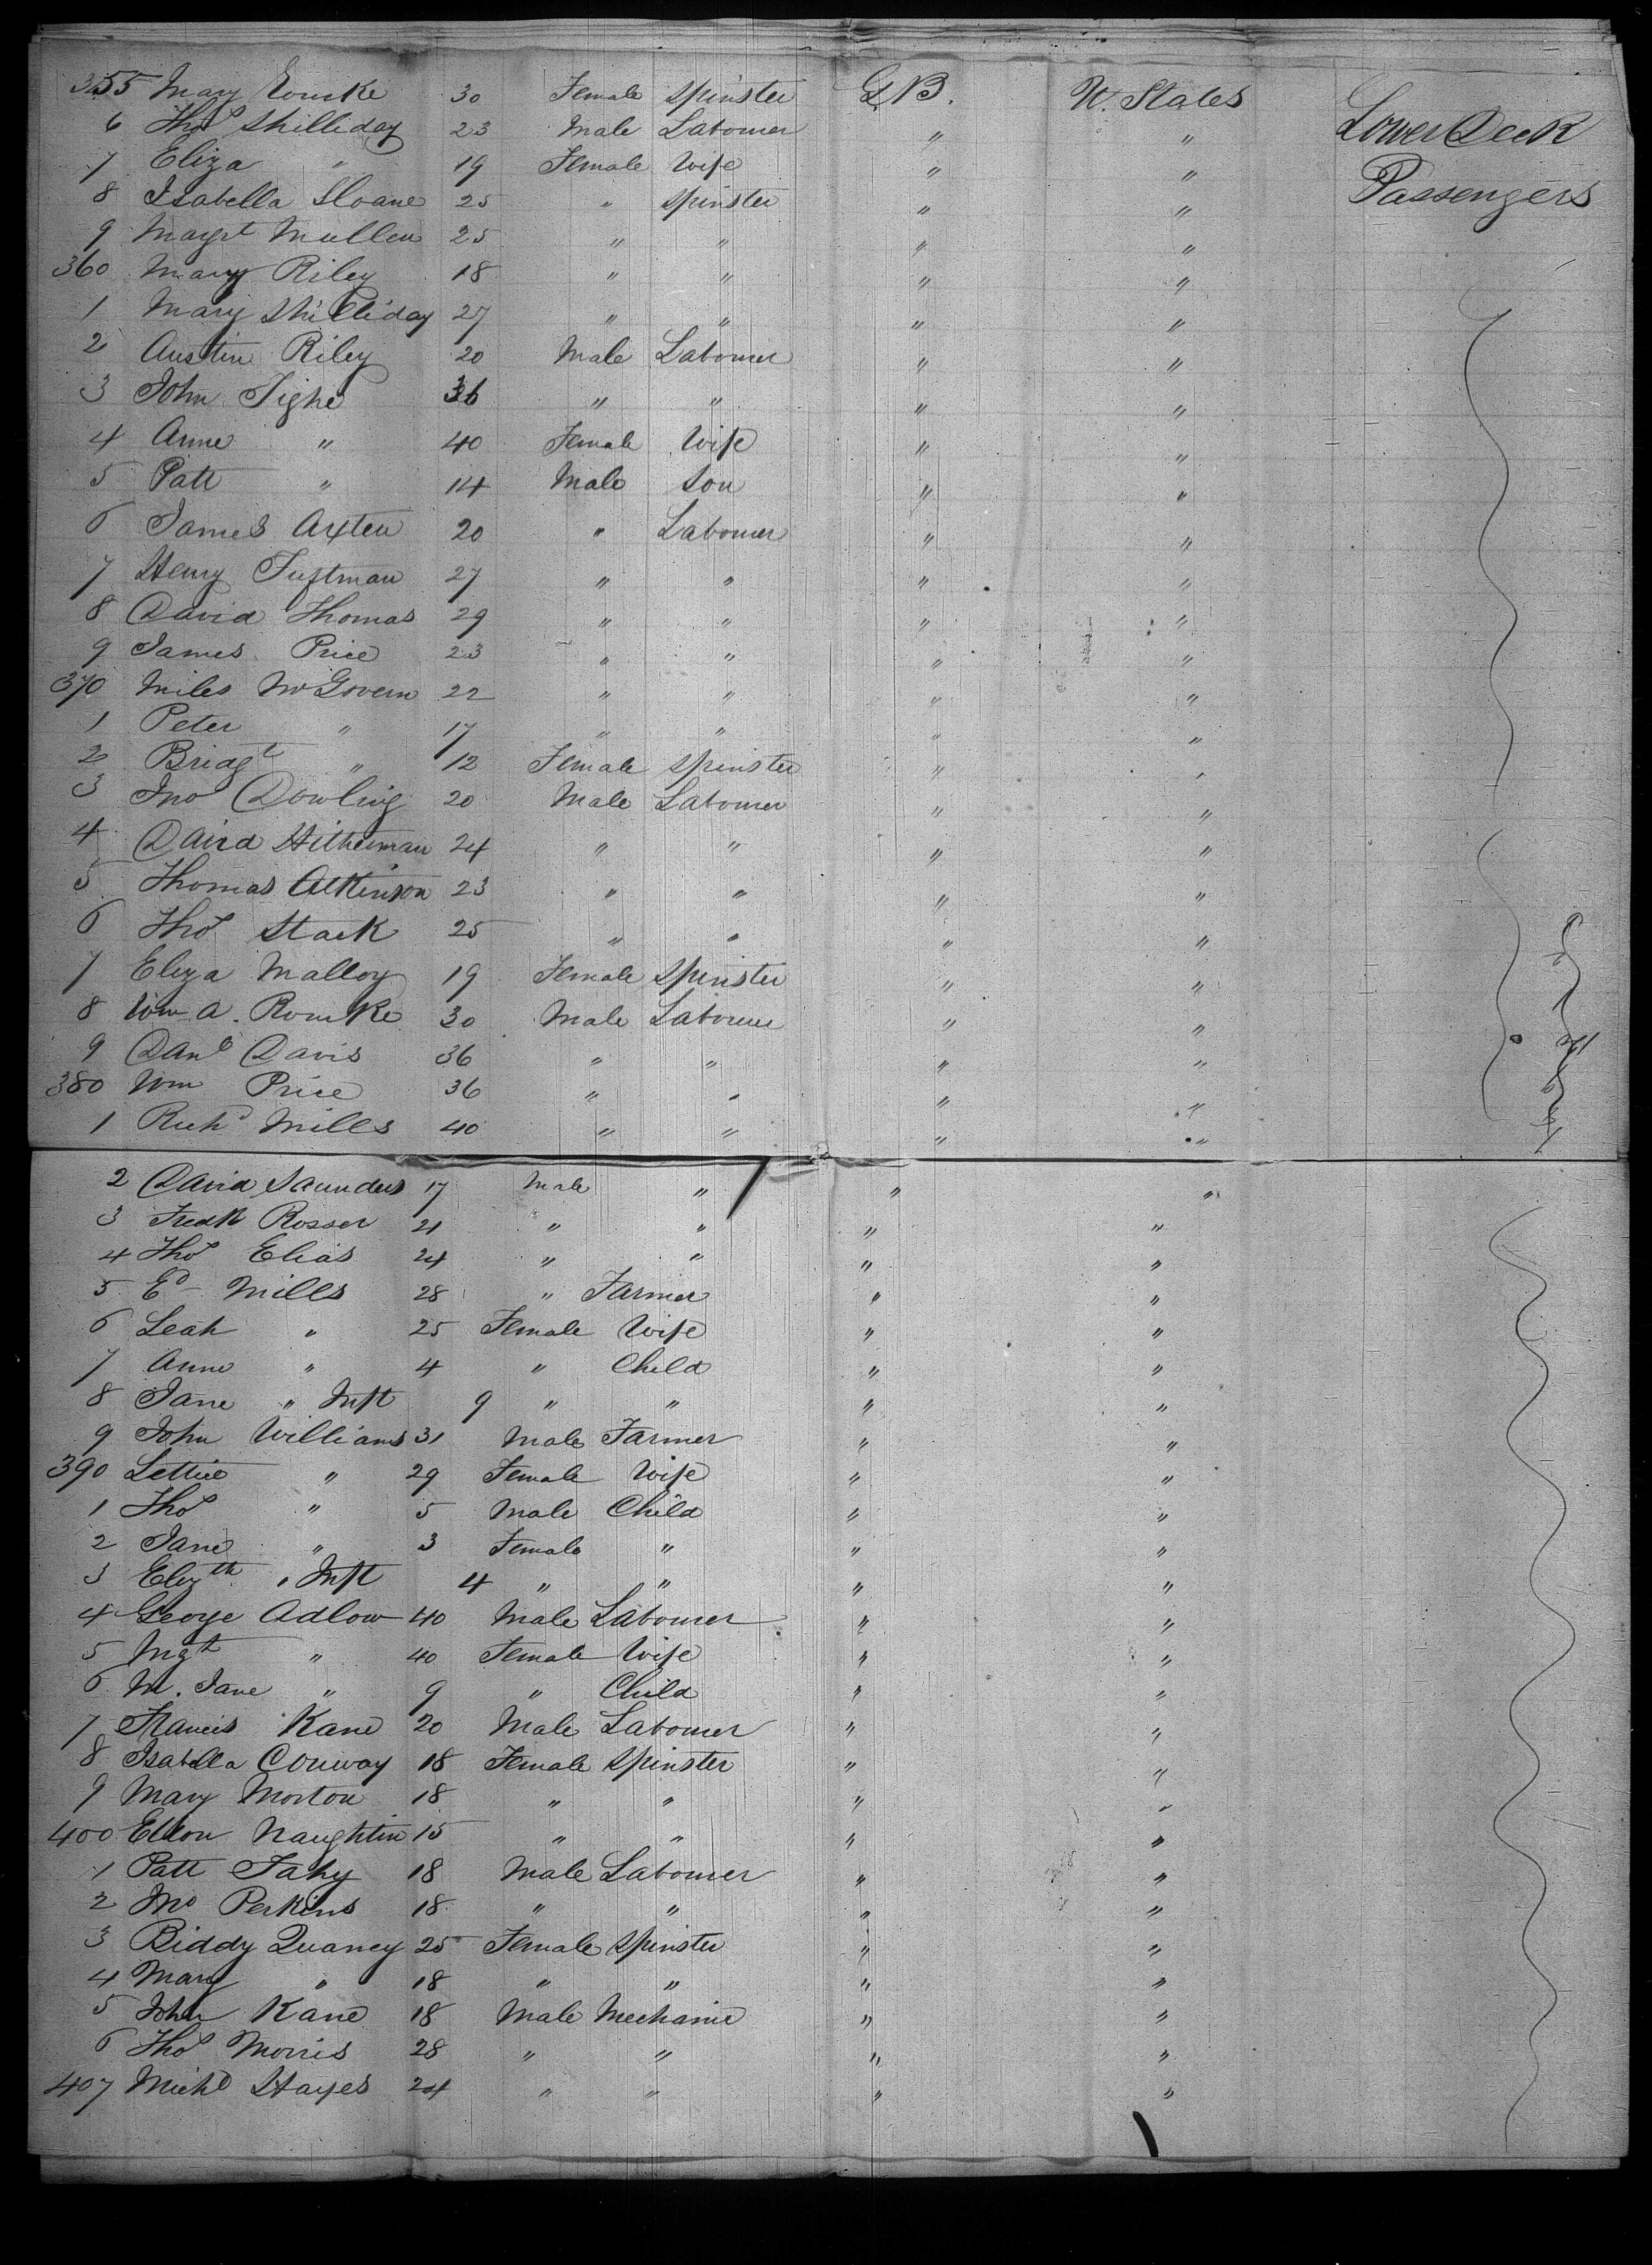 355 Mary Rourke 30 Female Spinster G.B. U. States Lower Deck Passengers
6 Thos Shilliday 23 Male Labourer " "
7 Eliza " 19 Female Wife " "
8 Isabella Sloane 25 " Spinster " "
9 Margt Mullen 25 " " " "
360 Mary Riley 18 " " " "
1 Mary Shilliday 27 " " " "
2 Austin Riley 20 Male Labourer " "
3 John Tighe 36 " " " "
4 Anne " 40 Female Wife " "
5 Patt " 14 Male Son " "
6 James Axten 20 " Labourer " "
7 Henry Tuftman 27 " " " "
8 David Thomas 29 " " " "
9 James Price 23 " " " "
370 Miles McGovern 22 " " " "
1 Peter " 17 " " " "
2 Bridgt " 12 Female Spinster " "
3 Jno Dowling 20 Male Labourer " "
4 David Hitherman 24 " " " "
5 Thomas Atkinson 23 " " " "
6 Thos Stack 25 " " " "
7 Eliza Malloy 19 Female Spinster " "
8 Wm A. Rourke 30 Male Labourer " "
9 Danl Davis 36 " " " "
380 Wm Price 36 " " " "
1 Richd Mills 40 " " " "
2 David Saunders 17 Male " " "
3 Fredk Rosser 21 " " " "
4 Thos Elias 24 " " " "
5 Ed Mills 28 " Farmer " "
6 Leah " 25 Female Wife " "
7 Anne " 4 " Child " "
8 Jane " Inft 9 " " " "
9 John Williams 31 Male Farmer " "
390 Lettice " 29 Female Wife " "
1 Thos " 5 Male Child " "
2 Jane " 3 Female " " "
3 Elizth " Inft 4 " " " "
4 George Adlow 40 Male Labourer " "
5 Mgt " 40 Female Wife " "
6 M. Jane " 9 " Child " "
7 Francis Kane 20 Male Labourer " "
8 Isabella Conway 18 Female Spinster " "
9 Mary Morton 18 " " " "
400 Ellen Naughtin 15 " " " "
1 Patt Fahy 18 Male Labourer " "
2 Jno Perkins 18 " " " "
3 Biddy Quaney 25 Female Spinster " "
4 Mary " 18 " " " "
5 John Kane 18 Male Mechanic " "
6 Thos Morris 28 " " " "
407 Michl Hayes 24 " " " "